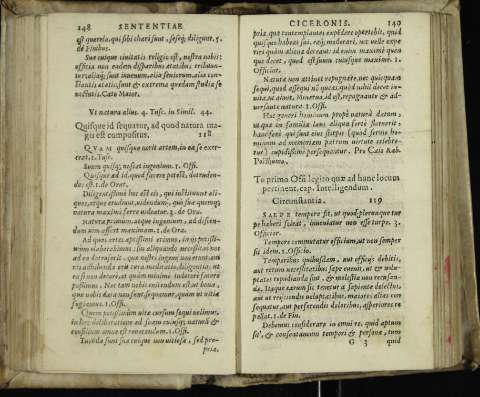 148 SENTENTIAE
est querela, qui sibi chari sunt, seseq; diligunt. 5.
de Finibus.
Sua cuique civitatis religio est, nostra nobis:
officia non eadem disparibus aetatibus tribuun-
tur: aliaq; sunt iuvenum, alia seniorum. alia con-
stantis aetatis; sunt & extrema quaedam studia se
nectutis. Cato Maior.
Vt natura alius. 4. Tusc. in Simil. 44.
Quisque id sequatur, ad quod natura ma-
gis est compositus. 118
QVAM quisque norit artem, in ea se exer-
ceat. 1. Tusc.
Suum quisq; noscat ingenium. 1. Offi.
Quisque ad id, quod facere potest, detruden-
dus est. 1. de Orat.
Diligentissimè hoc est eis, qui instituunt ali-
quos, atque erudiunt, videndum, quò sua quemq;
natura maximè ferre videatur. 3. de Ora.
Natura primùm, atque ingenium, ad dicen-
dum vim affert maximam. 1. de Ora.
Ad quas res aptissimi erimus, in ijs potissi-
mùm elaborabimus: sin aliquando necessitas nos
ad ea detruserit, quae nostri ingenij non erunt, om
nis adhibenda erit cura, meditatio, diligentia, vt
ea si non decorè, at quàm minimè indecorè facere
possimus. Nec tam nobis enitendum est vt bona,
quae nobis data non sunt, sequamur, quàm vt vitia
fugiamus. 1. Offi.
Quem potissimum vitae cursum sequi velimus,
in hac deliberatione ad suam cuiusq; naturam
consilium omne est revocandum. 1. Offi.
Tuenda sunt sua cuique non vitiosa, sed pro-
pria,
CICERONIS. 149
pria, quae contemplantes expedere oportebit, quid
quisque habeat sui, eosq; moderari, nec velle expe
riri quàm aliena deceant: id enim maximè quen
que decet, quod est suum cuiusque maximè. 1.
Officior.
Natura non attinet repugnare, nec quicquam
sequi, quod assequi nō queas: quòd nihil decet in-
vita, vt aiunt, Minerva, id est, repugnante & ad-
versante natura. 1. Offi.
Hoc generi hominum propè natura datum,
vt qua in familia laus aliqua fortè floruerit,
hanc ferè, qui sunt eius stirpis (quod sermo ho-
minum ad memoriam patrum virtute celebre-
tur) cupidissimè persequantur. Pro Caio Rab.
Posthumo.
To primo Offi legito quae ad hunc locum
pertinent. cap. Intelligendum.
Circunstantia. 119
SAEPE tempore fit, vt quod plerunque tur
pe haberi soleat, inveniatur non esse turpe. 3.
Officior.
Tempore commutatur officium, vt non semper
sit idem. 1. Officio.
Temporibus quibusdam, aut officijs debitis,
aut rerum necessitatibus saepe eveniet, vt & volu-
ptates repudiandae sint, & molestiae non recusan-
dae. Itaque earum sic tenetur à sapiente delectus,
aut vt reijciendis voluptatibus, maiores alias con
sequatur, aut perferendis doloribus, asperiores re
pellat. 1. de Fin.
Debemus considerare in omni re, quid aptum
sit, & consentaneum tempori & personae, tum
G 3 quid